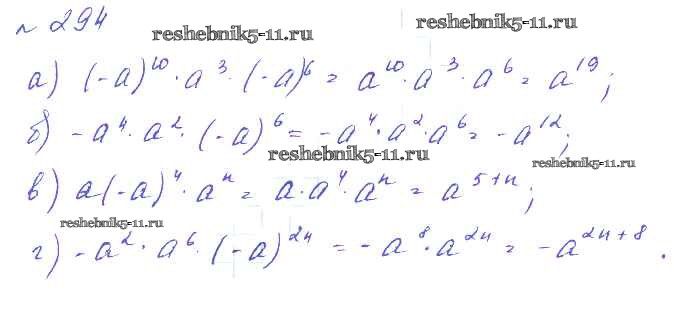 № 294
reshebnik5-11.ru
reshebnik5-11.ru
а) (-a)^10 · a^3 · (-a)^6 = a^10 · a^3 · a^6 = a^19;
б) -a^4 · a^2 · (-a)^6 = -a^4 · a^2 · a^6 = -a^12;
reshebnik5-11.ru
reshebnik5-11.ru
в) a(-a)^4 · a^n = a · a^4 · a^n = a^5+n;
reshebnik5-11.ru
г) -a^2 · a^6 · (-a)^2n = -a^8 · a^2n = -a^2n+8.